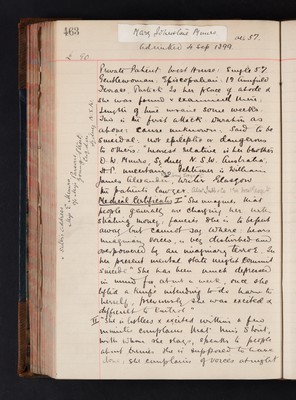 463
Mary Johnstone Munro
Admitted 4 Sep 1899.
aet. 57.
£ 90
Private Patient. West House: Single 57
Gentlewoman: Episcopalian: 17
Terrace, Partick is her place of abode &
she was found & examined there.
Length of time insane some weeks.
This is the first attack. Duration as
above: cause unknown. Said to be
suicidal, not epileptic or dangerous
to others: nearest relative is her brother
D. W. Munro, Sydney N. S. W. Australia.
Petitioner is William
James Alexander, Writer Glasgow
the patients lawyer.
Medical Certificates I "She imagines that
people generally are charging her with
stealing money, fancies she is to be put
away but cannot say where: hears
imaginary voices, is very disturbed and
overpowered by an imaginary terror. In
her present mental state might commit
suicide" She has been much depressed
in mind for about a week, once she
lifted a knife intending to do harm to
herself, previously she was excited &
difficult to control"
II "She is restless & excited within a few
minutes complains that Miss
with whom she stays, speaks to people
about crimes she is supposed to have
done, she complains of voices at night